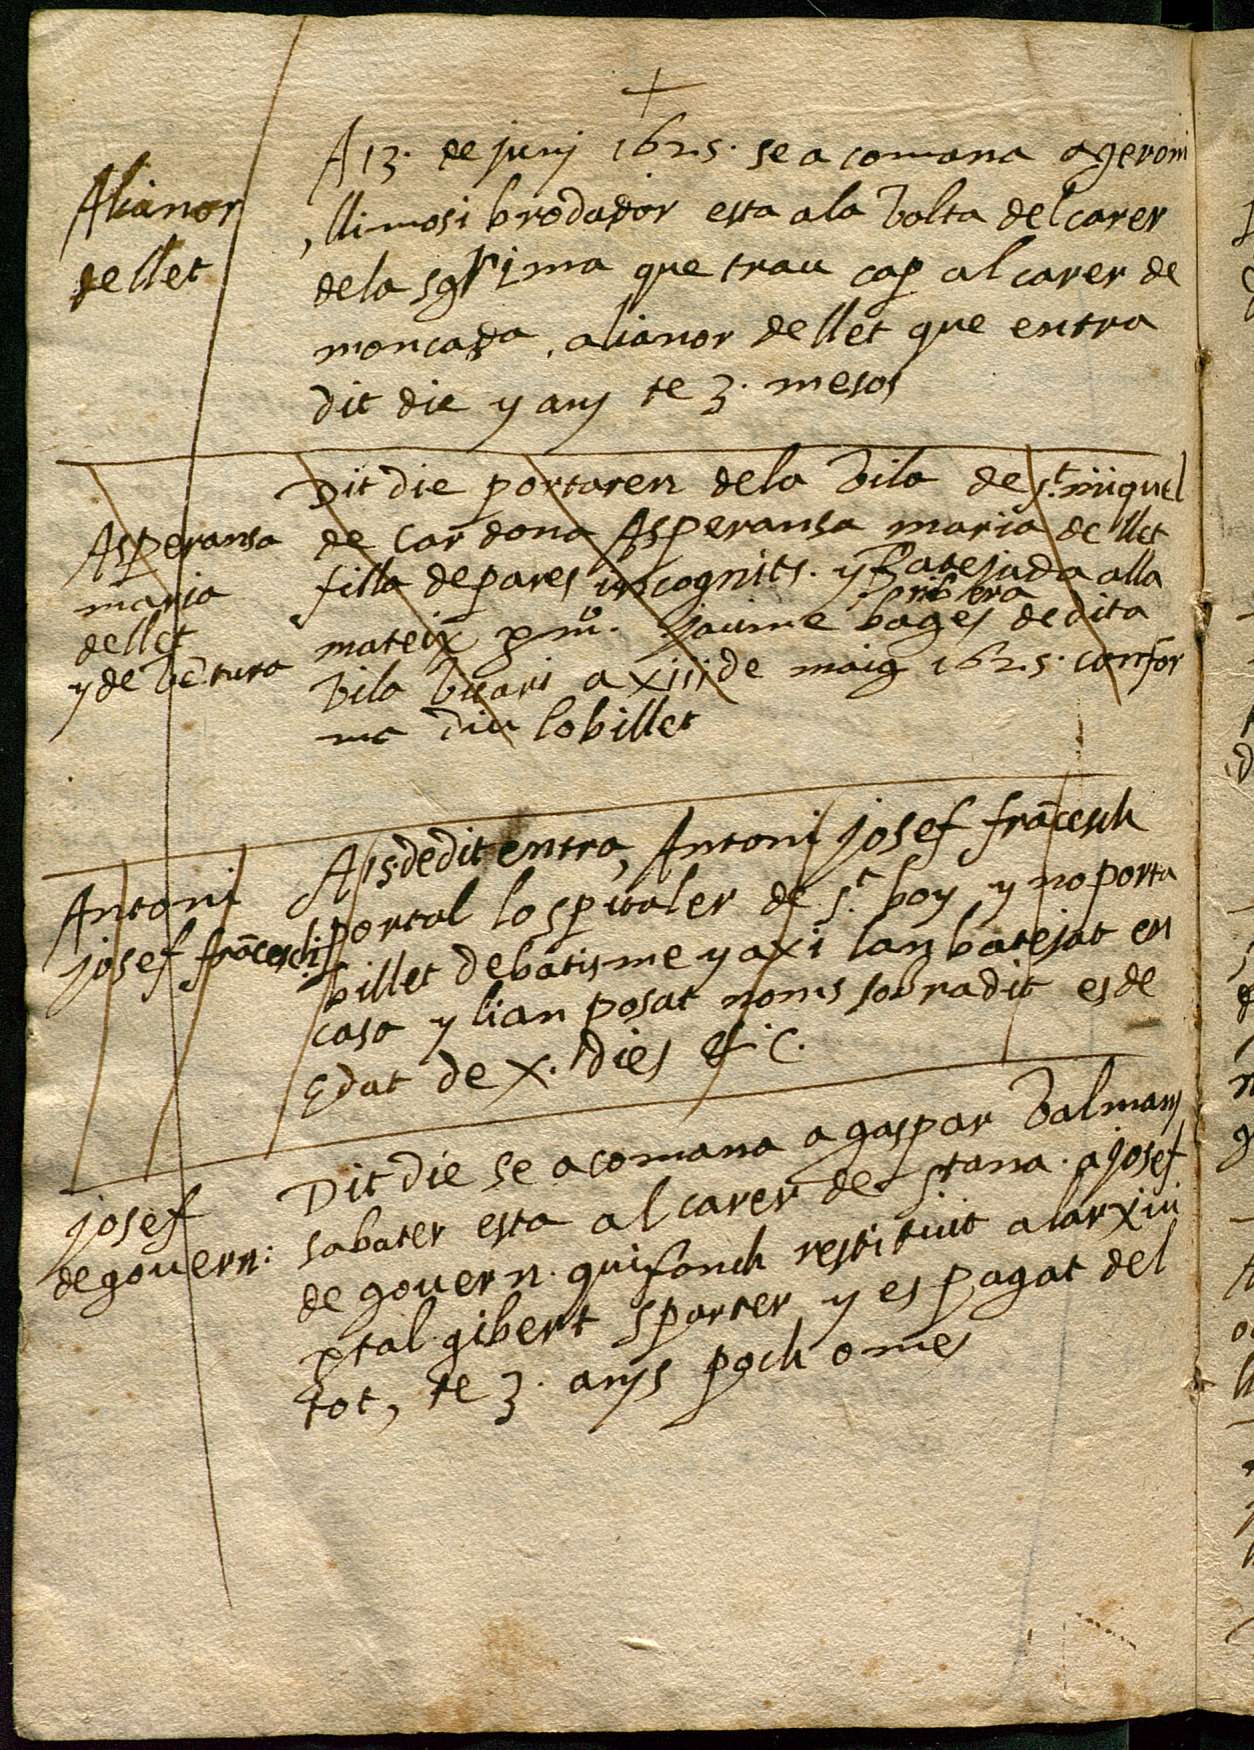 A 13. de juny 1625. se a comana a geroni
Alianor
de llet
llimosi brodador esta a la Volta del carer
de la sgrima que trau cap al carer de
moncada . alianor de llet que entra
dit die y any te 3. mesos
Asperansa
maria
de llet
y de Vētura
Dit die portaren de la Vila de st. miquel
de Cardona Asperansa maria de llet
filla de pares incognits. y Batejada alla
mateix pm̊. jaume bages de dita
Vila Vicari a xiii de maig 1625. confor
ma diu lo billet
Antoni
josef frācesch
A 15 de dit entra, Antoni josef frācesch
portal lospitaler de st. boy y no porta
billet de batisme y axi lan batejat en
casa y lian posat noms sobradit es de
Edat de x. dies &.c.
josef
de govern:
Dit die se a comana a gaspar Dalmany
sabater esta al carer de sta na . a josef
de govern. qui fonch restituit a la rxiii
ptal gibert sparter y es pagat del
tot, te 3. anys poch o mes